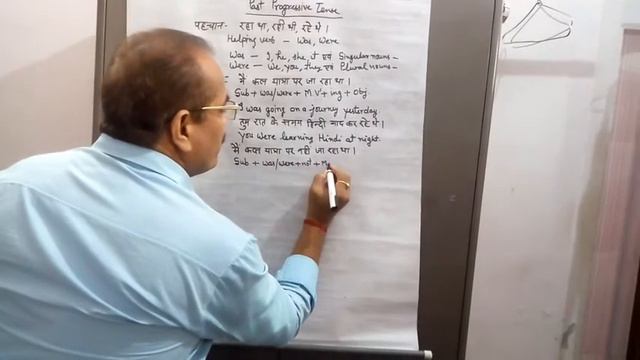 Past Progressive Tense
पहचान - रहा था, रही थी, रहे थे।
Helping verb - Was, Were
Was - I, he, she, it एवं Singular nouns -
Were - We, you, they एवं Plural nouns -
मैं कल यात्रा पर जा रहा था।
Sub + was/were + M V¹ + ing + obj.
I was going on a journey yesterday.
तुम रात के समय हिन्दी याद कर रहे थे।
You were learning Hindi at night.
मैं कल यात्रा पर नहीं जा रहा था।
Sub + was/were + not + M